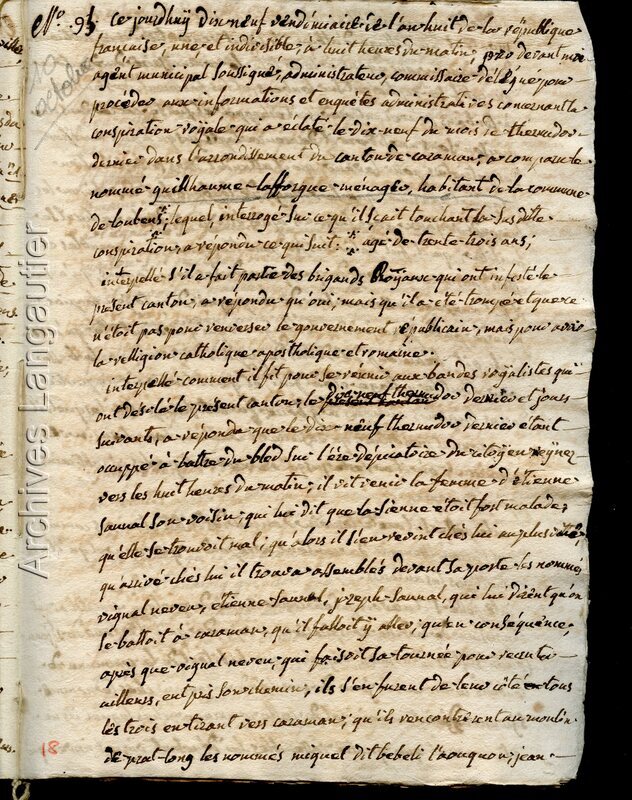 N.º 9. ce jourdhuy dix neuf vendémiaire de l'an huit de la république
10 octobre
française, une et indivisible, à huit heures du matin, par devant moi
agent municipal soussigné, administrateur, commissaire délégué pour
procéder aux informations et enquêtes administratives concernant la
conspiration royale qui a éclaté le dix-neuf du mois de thermidor
dernier dans l'arrondissement du canton de caraman, a comparu le
nommé guilhaume lafforgue ménager, habitant de la commune
de loubens, lequel, interrogé sur ce qu'il sçait touchant la susdite
conspiration, a répondu ce qui suit: agé de trente trois ans;
interpellé s'il a fait partie des brigands Royaux qui ont infesté le
présent canton, a répondu qu'oui, mais qu'il a été trompé et que ce
n'étoit pas pour renverser le gouvernement républicain, mais pour avoir
la relligion catholique apostholique et romaine.
interpellé comment il fit pour se réunir aux bandes royalistes qui
ont désolé le présent canton, le dix neuf thermidor dernier et jours
suivants, a répondu que le dix neuf thermidor dernier étant
occuppé à battre du bled sur l'ère du citoyen
vers les huit heures du matin, il vit venir la femme d'étienne
saunal son voisin, qui lui dit que la sienne étoit fort malade,
qu'elle se trouvoit mal, qu'alors il s'en revint chés lui au plus vitte,
qu'arrivé chés lui il trouva assemblés devant sa porte les nommés
vignal neveu, étienne saunal, joseph saunal, qui lui dirent qu'on
se battoit à caraman, qu'il falloit y aller, qu'en conséquence,
après que vignal neveu, qui faisoit sa tournée pour recruter
ailleurs, eut pris son chemin, ils s'en furent de leur côté tous
les trois en tirant vers caraman; qu'ils rencontrèrent au moulin
de prat-long les nommés miquel dit bebeli, jean
18
Archives Langautier